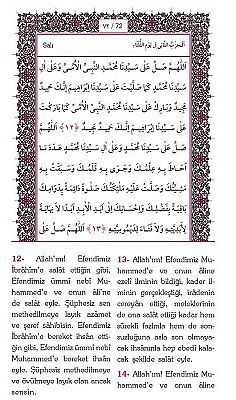 ٧٢ / 72
Salı
اَلْحِزْبُ الثَّانِي فِي يَوْمِ الثُّلَاثَاءِ
اَللّٰهُمَّ صَلِّ عَلٰى سَيِّدِنَا مُحَمَّدٍ النَّبِيِّ الْاُمِّيِّ وَعَلٰى اٰلِ
سَيِّدِنَا مُحَمَّدٍ كَمَا صَلَّيْتَ عَلٰى سَيِّدِنَا اِبْرَاهِيمَ اِنَّكَ حَمِيدٌ
مَجِيدٌ وَبَارِكْ عَلٰى سَيِّدِنَا مُحَمَّدٍ النَّبِيِّ الْاُمِّيِّ كَمَا بَارَكْتَ
عَلٰى سَيِّدِنَا اِبْرَاهِيمَ اِنَّكَ حَمِيدٌ مَجِيدٌ ﴿١٢﴾ اَللّٰهُمَّ
صَلِّ عَلٰى سَيِّدِنَا مُحَمَّدٍ وَعَلٰى اٰلِ سَيِّدِنَا مُحَمَّدٍ عَدَدَ مَا
اَحَاطَ بِهِ عِلْمُكَ وَجَرٰى بِهِ قَلَمُكَ وَسَبَقَتْ بِهِ
مَشِيَّتُكَ وَصَلَّتْ عَلَيْهِ مَلٰئِكَتُكَ صَلَاةً دَائِمَةً بِدَوَامِكَ
بَاقِيَةً بِفَضْلِكَ وَاِحْسَانِكَ اِلٰى اَبَدِ الْاَبَدِ اَبَدًا لَا نِهَايَةَ
لِاَبَدِيَّتِهِ وَلَا فَنَاءَ لِدَيْمُومِيَّتِهِ ﴿١٣﴾ اَللّٰهُمَّ صَلِّ عَلٰى
12- Allah'ım! Efendimiz
İbrâhîm'e salât ettiğin gibi,
Efendimiz ümmî nebî Mu-
hammed'e ve onun âli'ne
de salât eyle. Şüphesiz sen
methedilmeye layık azâmet
ve şeref sâhibisin. Efendimiz
İbrâhîm'e bereket ihsân etti-
ğin gibi, Efendimiz ümmî nebî
Muhammed'e bereket ihsân
eyle. Şüphesiz methedilmeye
ve övülmeye layık olan ancak
sensin.
13- Allah'ım! Efendimiz Mu-
hammed'e ve onun âline
ezelî ilminin bildiği, kader il-
minin gerçekleştiği, irâdenin
cereyân ettiği, meleklerinin
de ona salât ettiği kadar hem
sürekli fazlınla hem de son-
suzluğuna asla son olmaya-
cak ihsânınla hep ebedî kala-
cak şekilde salât eyle.
14- Allah'ım! Efendimiz Mu-
hammed'e ve onun âline